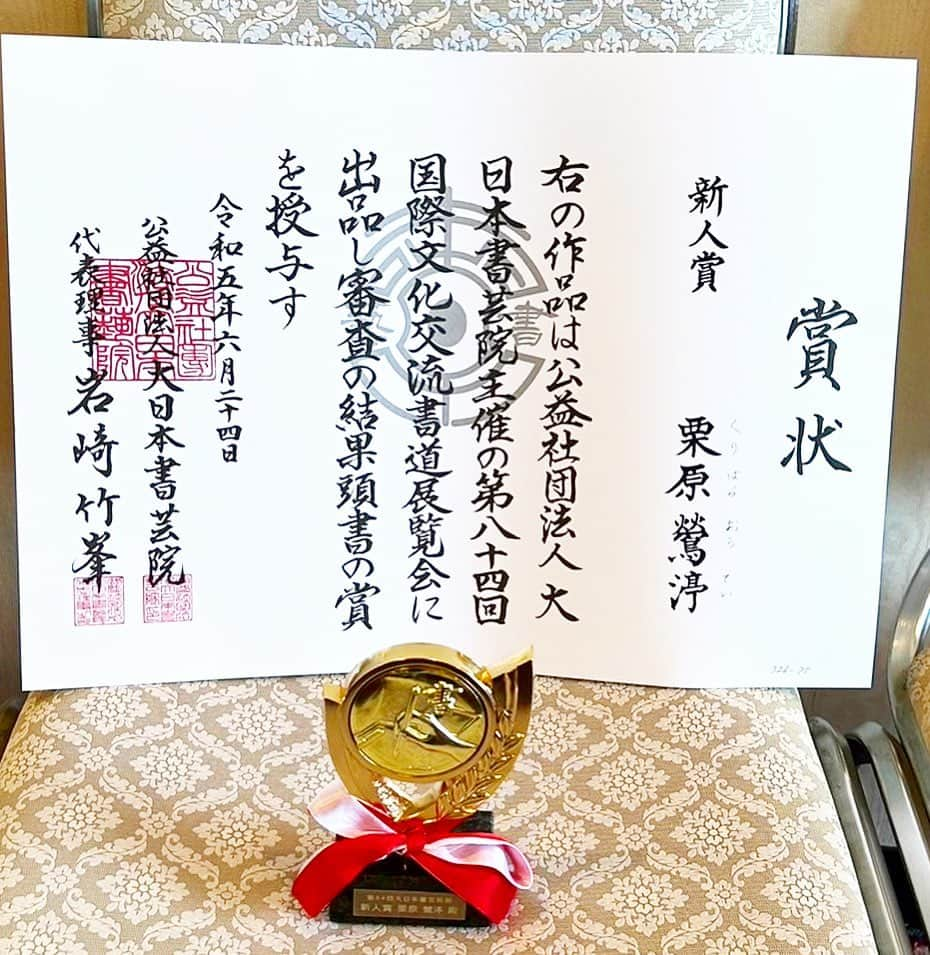 賞状
新人賞
栗原 鶯渟
くりばら おうてい
右の作品は公益社団法人大
日本書芸院主催の第八十四回
国際文化交流書道展覧会に
出品し審査の結果頭書の賞
を授与す
令和五年六月二十四日
公益社団法人大日本書芸院
代表理事 岩崎竹峯
書
書
第84回大日本書芸院展
新人賞 栗原 鶯渟 殿